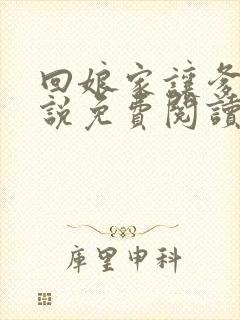 回娘家讓爹
說免費閱讀
庫里申科